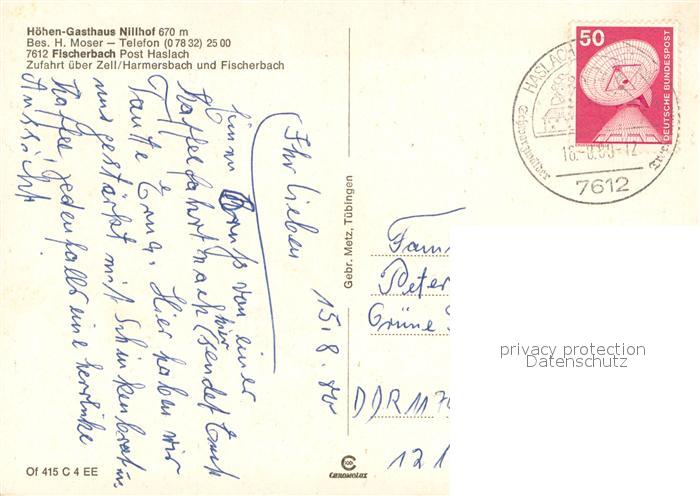 Höhen-Gasthaus Nillhof 670 m
Bes. H. Moser – Telefon (0 78 32) 25 00
7612 Fischerbach Post Haslach
Zufahrt über Zell/Harmersbach und Fischerbach
15.8.80
Ihr Lieben
einen Gruß von einer
Kaffeefahrt nach hier sendet Euch
Tante Erna. Hier haben wir
uns gestärkt mit Schinkenbrot u.
Kaffee jedenfalls eine herrliche
Aussicht
Gebr. Metz, Tübingen
50
DEUTSCHE BUNDESPOST
HASLACH
18.-8.80-12
7612
Fam
Peter
Grüne
DDR 117
121
privacy protection
Datenschutz
Of 415 C 4 EE
CHROMOLUX